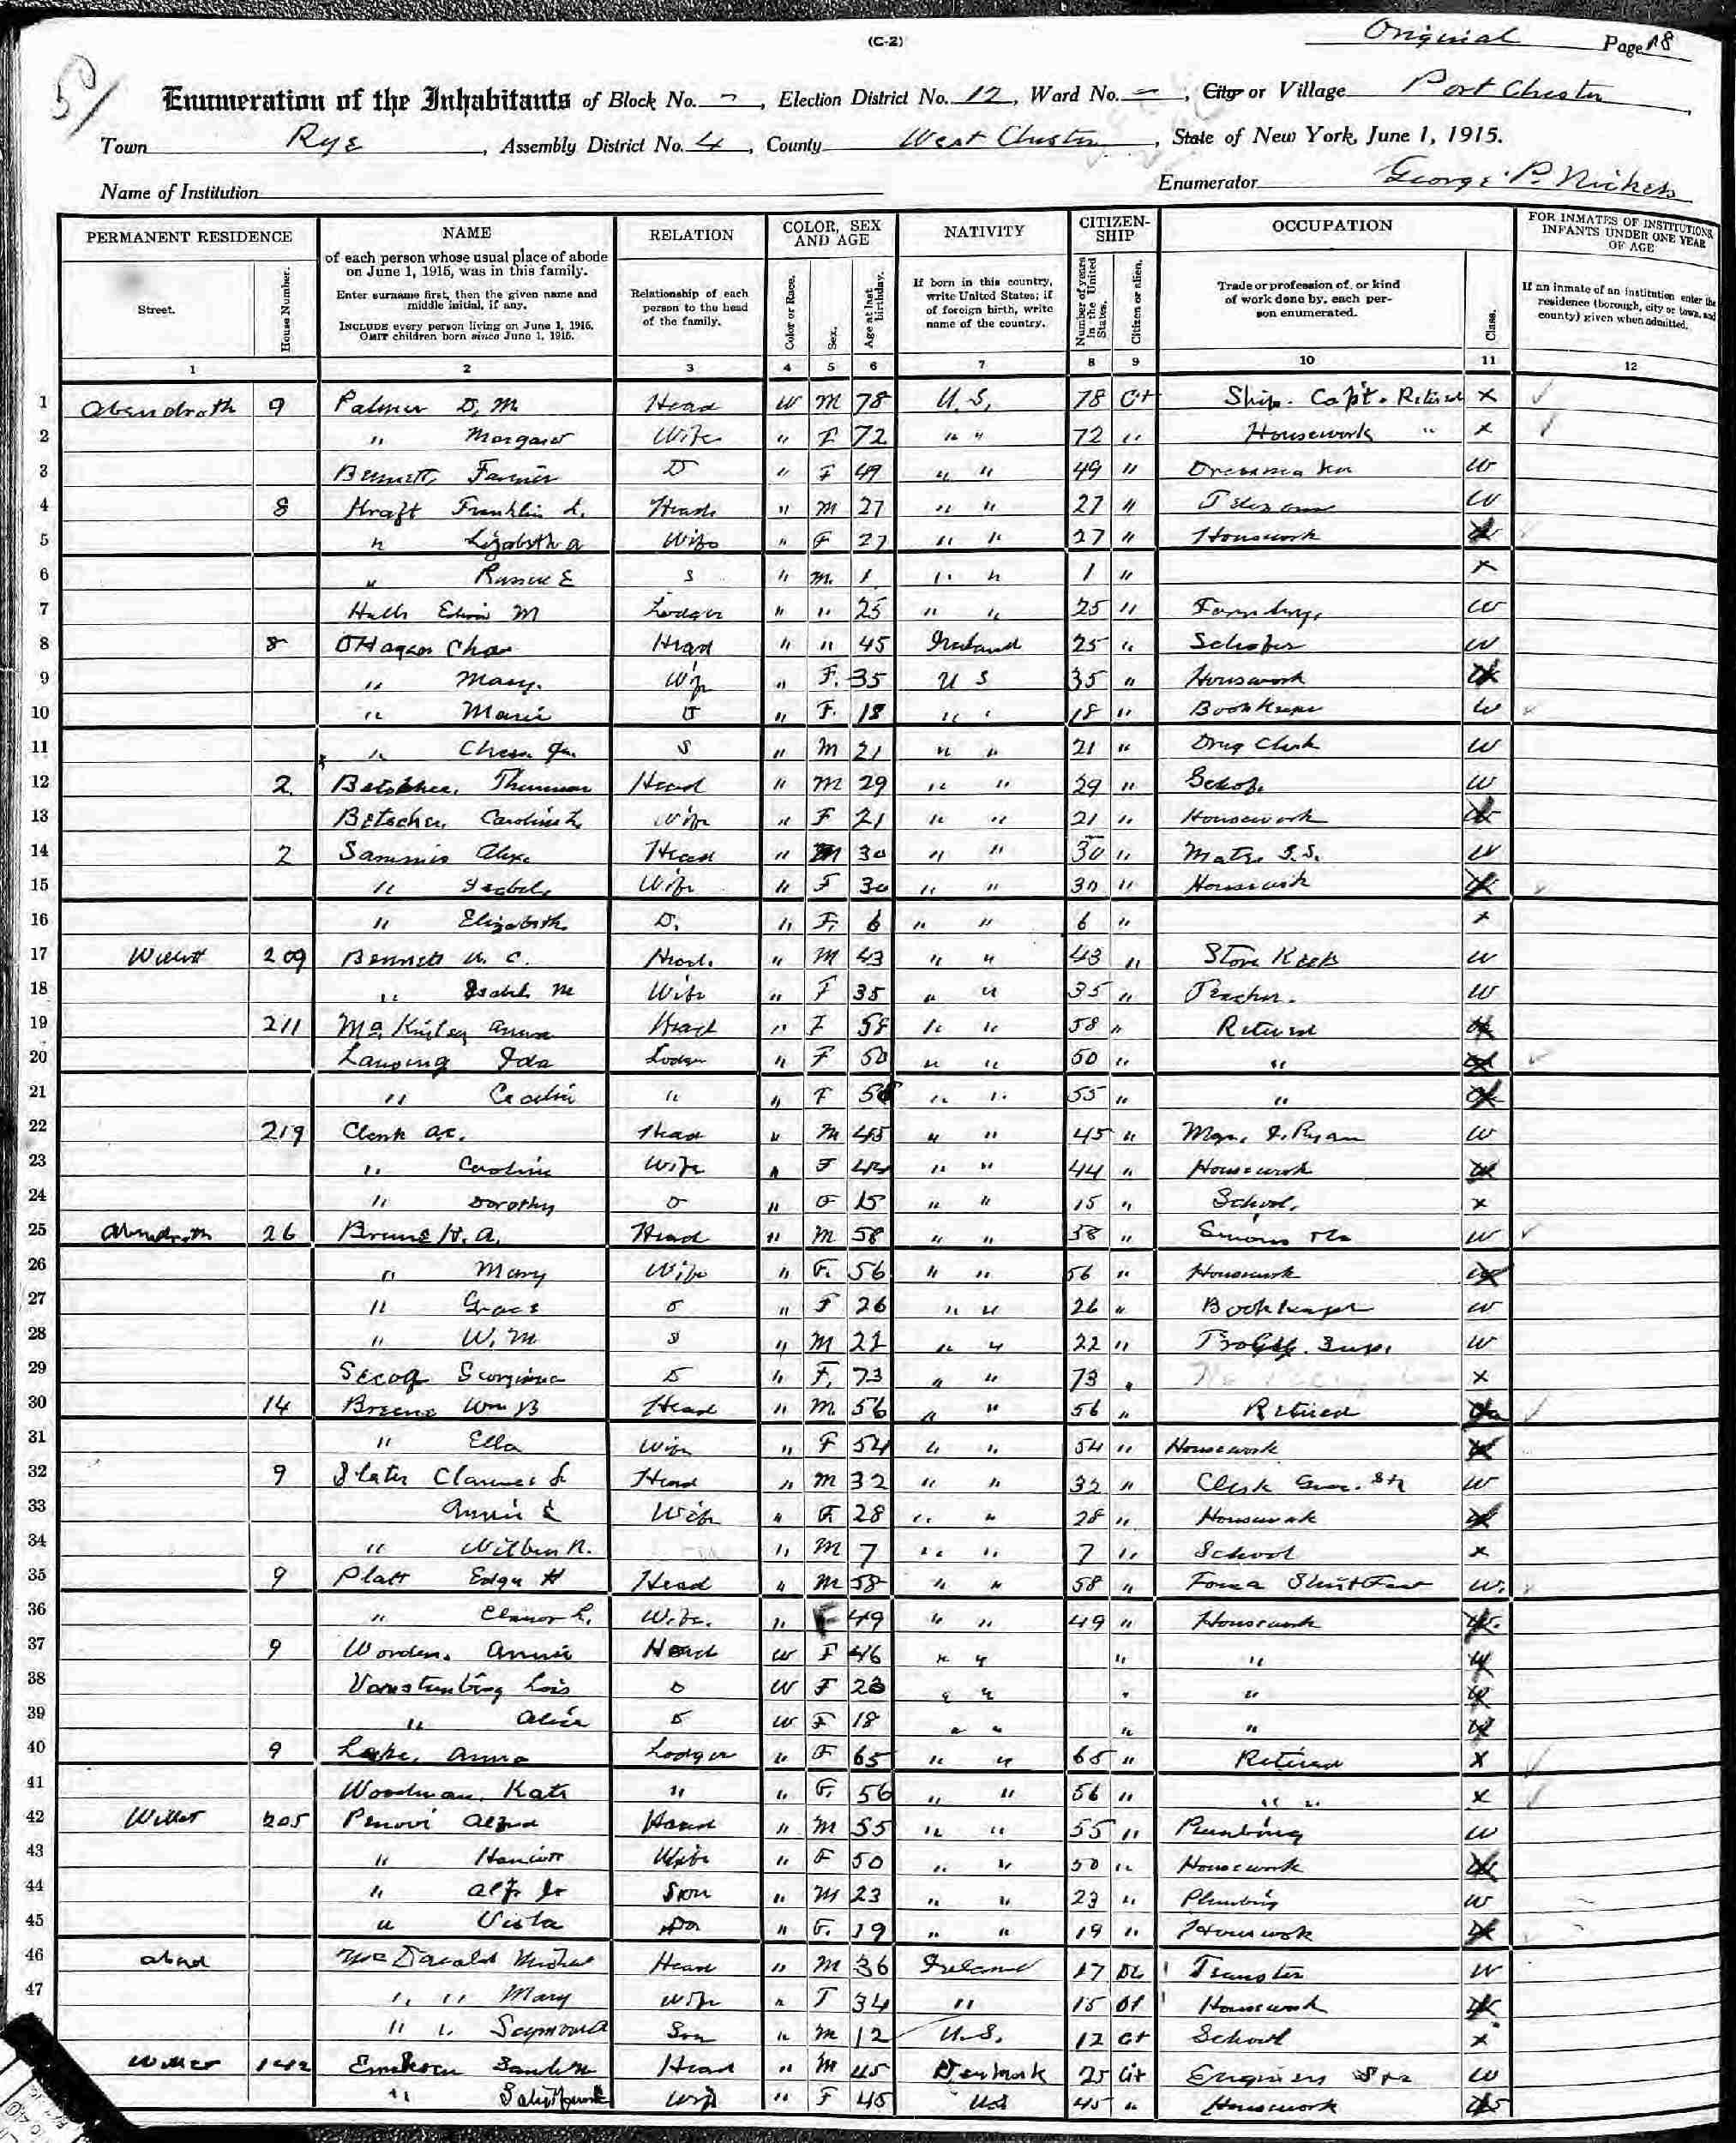 Original Page 18
(C-2)
Enumeration of the Inhabitants of Block No. -, Election District No. 12, Ward No. -, City or Village Port Chester
Town Rye, Assembly District No. 4, County West Chester, State of New York, June 1, 1915.
Name of Institution
Enumerator George P.
PERMANENT RESIDENCE NAME RELATION COLOR, SEX AND AGE NATIVITY CITIZEN-SHIP OCCUPATION FOR INMATES OF INSTITUTIONS, INFANTS UNDER ONE YEAR OF AGE
Street. House Number. of each person whose usual place of abode on June 1, 1915, was in this family. Enter surname first, then the given name and middle initial, if any. INCLUDE every person living on June 1, 1915. OMIT children born since June 1, 1915. Relationship of each person to the head of the family. Color or Race. Sex. Age at last birthday. If born in this country, write United States; if of foreign birth, write name of the country. Number of years in the United States. Citizen or alien. Trade or profession of, or kind of work done by, each person enumerated. Class. If an inmate of an institution enter the residence (borough, city or town, and county) given when admitted.
1 2 3 4 5 6 7 8 9 10 11 12
1 Abendroth 9 Palmer D. M. Head W M 78 U.S. 78 Ct Ship. Capt. Retired x
2 " Margaret Wife " F 72 " " 72 " Housework " x
3 Bennett, D " F 49 " " 49 " W
4 8 Kraft Franklin L. Head " M 27 " " 27 " W
5 " Lizabeth A Wife " F 27 " " 27 " Housework
6 " E S " M. 1 " " 1 " x
7 Edwin M Lodger " " 25 " " 25 " W
8 8 OHagan Chas Head " " 45 Ireland 25 " W
9 " Mary. Wife " F. 35 U S 35 " Housework
10 " Marie D " F. 18 " " 18 " Bookkeeper W
11 " S " M 21 " " 21 " Drug Clerk W
12 2 Head " M 29 " " 29 " W
13 Betscher, Caroline L. Wife " F 21 " " 21 " Housework
14 2 Sammis Alex. Head " M 30 " " 30 " W
15 " Isabel Wife " F 30 " " 30 " Housework
16 " Elizabeth D. " F. 6 " " 6 " x
17 Willett 209 Bennett C. Head. " M 43 " " 43 " Store Keep W
18 " Isabel M Wife " F 35 " " 35 " Teacher. W
19 211 McKinley Anna Head " F 58 " " 58 " Retired
20 Lansing Ida Lodger " F 50 " " 50 " "
21 " Cecelia " " F " " 55 " "
22 219 Clark A.C. Head " M 45 " " 45 " W
23 " Caroline Wife " F 44 " " 44 " Housework
24 " Dorothy D " F 15 " " 15 " School. x
25 Abendroth 26 H. A. Head " M 58 " " 58 " W
26 " Mary Wife " F. 56 " " 56 " Housework
27 " Grace D " F 26 " " 26 " Bookkeeper W
28 " W. M S " M 22 " " 22 " W
29 Georgiana D " F. 73 " " 73 " x
30 14 Wm B Head " M. 56 " " 56 " Retired
31 " Ella Wife " F 54 " " 54 " Housework
32 9 Slater Clarence S. Head " M 32 " " 32 " Clerk W
33 Annie E Wife " F. 28 " " 28 " Housework
34 " Wilbur R. " M 7 " " 7 " School x
35 9 Platt Edgar H Head " M 58 " " 58 " W.
36 " Elanor L. Wife. " F 49 " " 49 " Housework
37 9 Worden. Annie Head W F 46 " " " "
38 Lois D W F 23 " " " "
39 " Alice D W F 18 " " " "
40 9 Lake, Anna Lodger " F 65 " " 65 " Retired x
41 Woodman. Kate " " F. 56 " " 56 " " " x
42 Willet 205 Alfred Head " M 55 " " 55 " Plumbing W
43 " Harriett Wife " F 50 " " 50 " Housework
44 " Alf. Jr Son " M 23 " " 23 " Plumbing W
45 " Viola Da " F. 19 " " 19 " Housework
46 McDonald Michael Head " M 36 Ireland 17 Teamster W
47 " " Mary Wife " F 34 " 15 Housework
" " Seymour Son " M 12 U.S. 12 Ct School x
Willet 142 Head " M 45 Denmark 25 Cit Engineer W
" Wife " F 45 US 45 " Housework